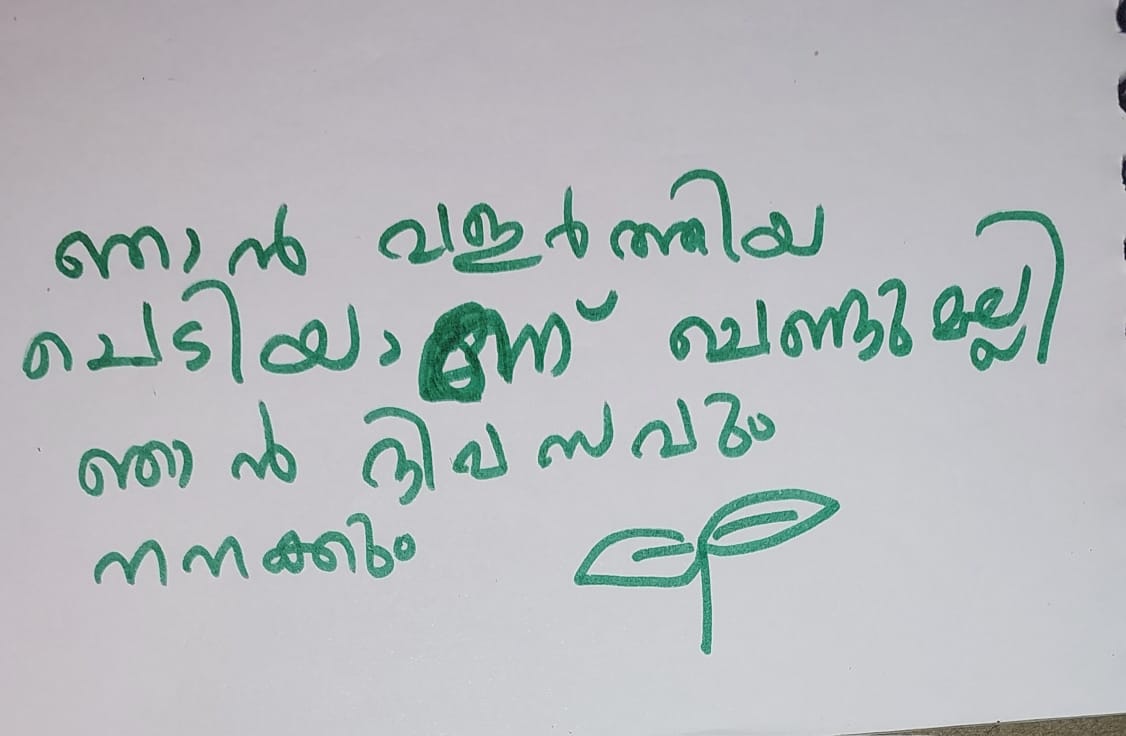 ഞാൻ വളർത്തിയ
ചെടിയാണ് ചെണ്ടുമല്ലി
ഞാൻ ദിവസവും
നനക്കും